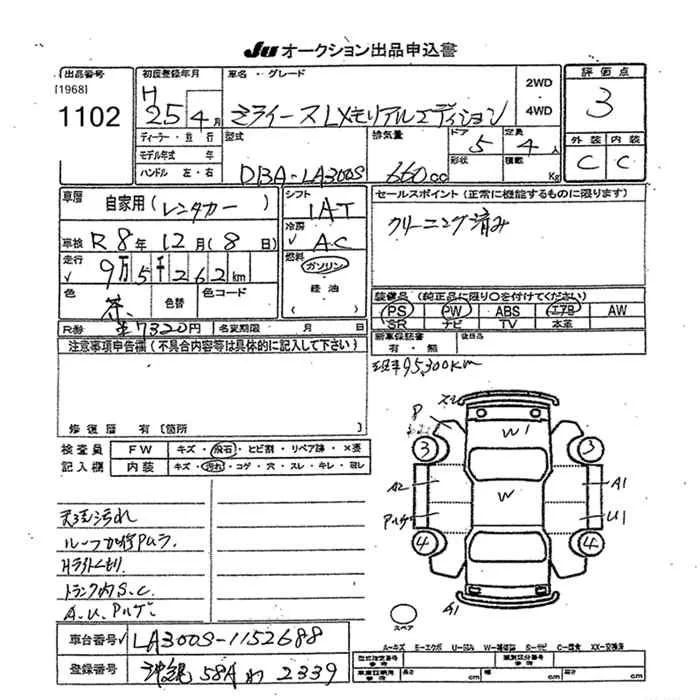 Ju オークション出品申込書
出品番号 初度登録年月 車名・グレード 2WD 評価点
[1968] H ・
1102 25年4月 ミライースLXメモリアルエディション 4WD 3
ディーラー・並行 型式 排気量 ドア 定員 外装 内装
モデル年式 年 5 4人
ハンドル 左・右 DBA-LA300S 660cc 形状 積載 Kg C C
車歴 自家用(レンタカー) シフト セールスポイント(正常に機能するものに限ります)
IAT クリーニング済み
車検 R8年12月(8日) 冷房 AC
走行 9万5千262km 燃料 ガソリン
色 茶 色替 色コード ・
軽油
装備品(純正品に限り○を付けてください)
( ) PS PW ABS エアB AW
R券 7320円 名変期限 月 日 SR ナビ TV 本革
注意事項申告欄(不具合内容等は具体的に記入して下さい) 新車保証書 後日品
有・無
現車95,300km
修復歴 有〔箇所 〕
検査員 FW キズ・飛石・ヒビ割・リペア跡・×要
記入欄 内装 キズ・汚れ・コゲ・穴・スレ・キレ・ヨレ
W1
3 3
A2 W A1
U1
4 4
天張汚れ
Hライトくもり
トランク内S.C
A1
スペア
車台番号 LA300S-1152688
A-キズ E-エクボ U-凹み W-補修跡 S-サビ C-腐食 XX-交換済
登録番号 沖縄 58A わ 2339
長さ cm 幅 cm 高さ cm